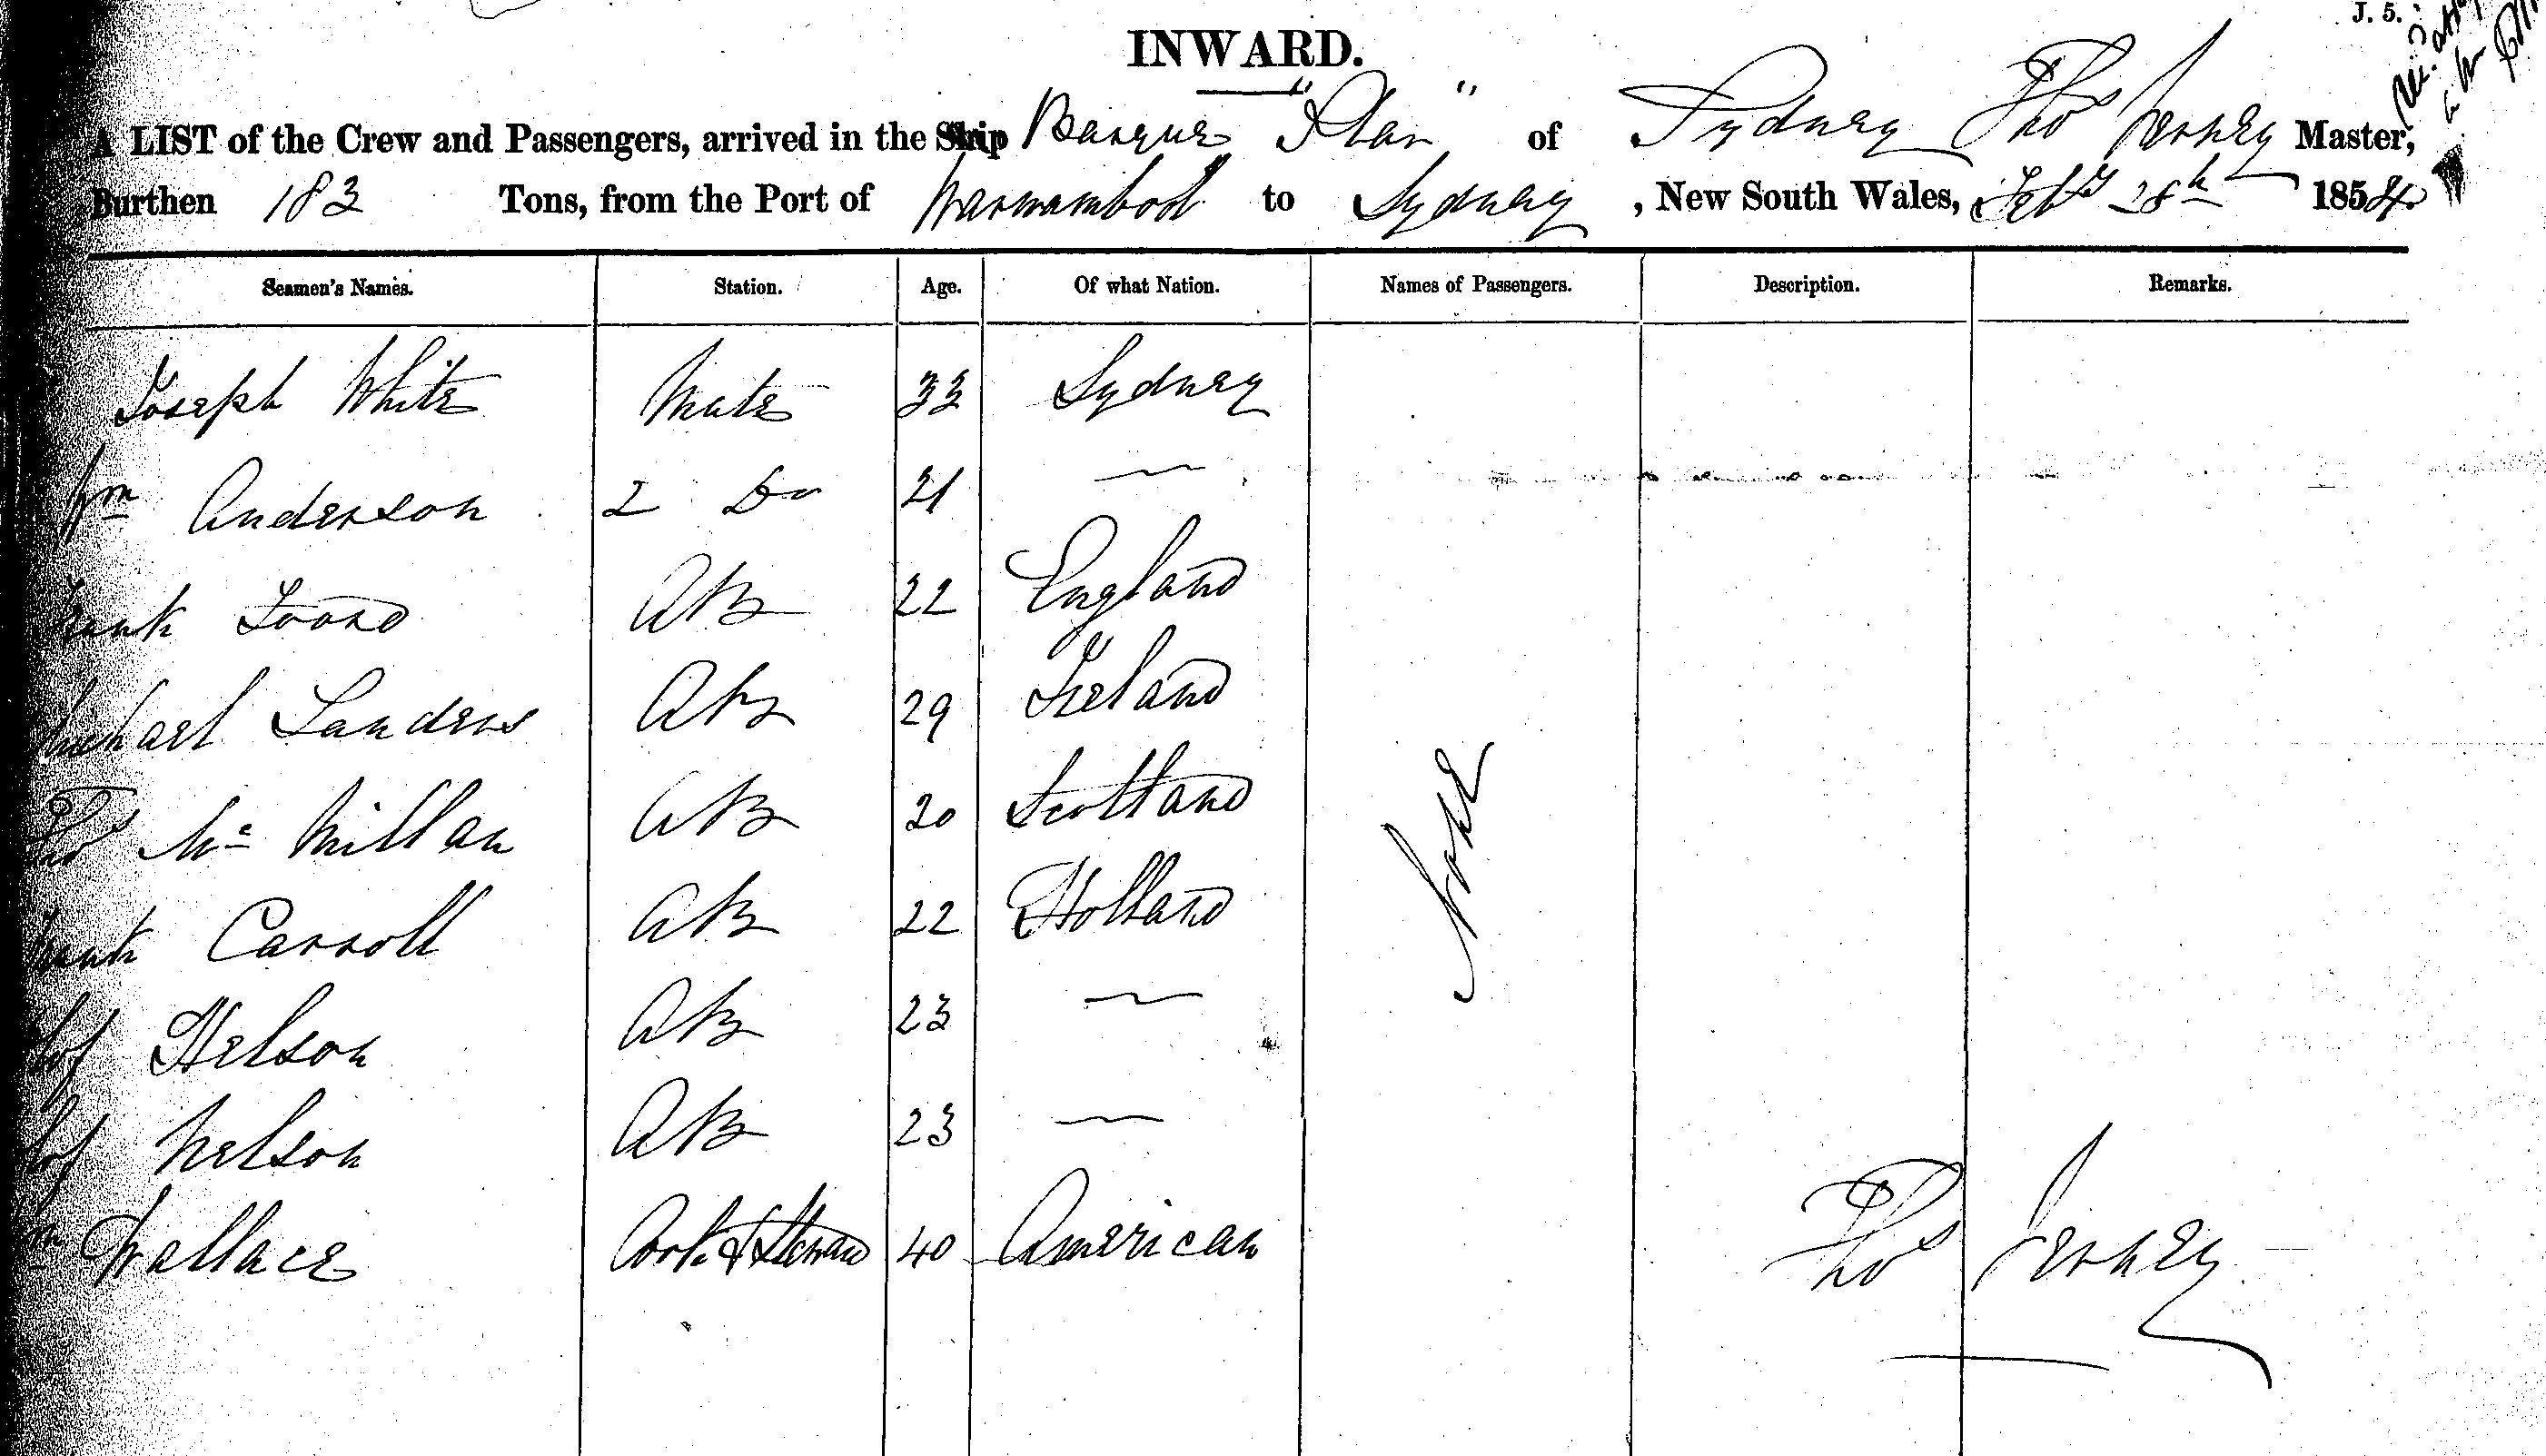 J. 5.
INWARD.
A LIST of the Crew and Passengers, arrived in the Ship Barque "Star" of Sydney Thos Master,
Burthen 183 Tons, from the Port of Warnambool to Sydney, New South Wales, Feby 28th 1854
Seamen's Names. Station. Age. Of what Nation. Names of Passengers. Description. Remarks.
Joseph White Mate 33 Sydney
Wm Anderson 2 Do 21 —
Frank AB 22 England
Michael Landers AB 29 Ireland
Thos Mc Millan AB 20 Scotland
Frank Carroll AB 22 Holland
Nelson AB 23 —
Nelson AB 23 —
Wm Wallace Cook & Steward 40 American
None
Thos